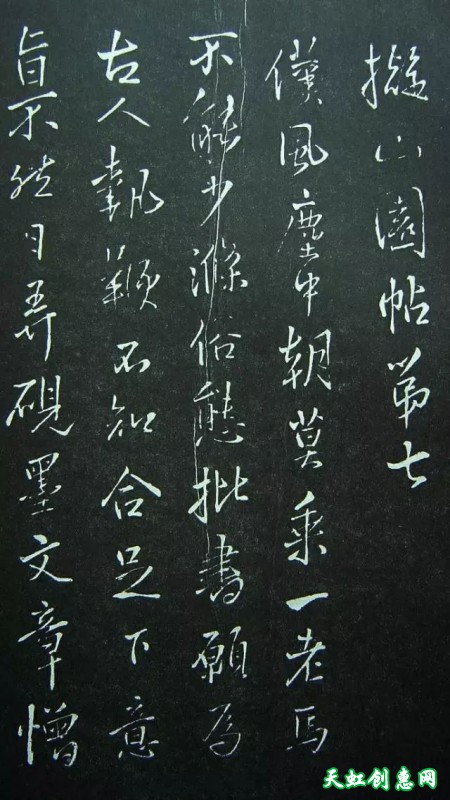 擬山園帖第七
僕風塵中朝莫乘一老馬
不能少滌俗態批書願為
古人執鞭不知合足下意
旨不然日弄硯墨文章憎
天虹创惠网